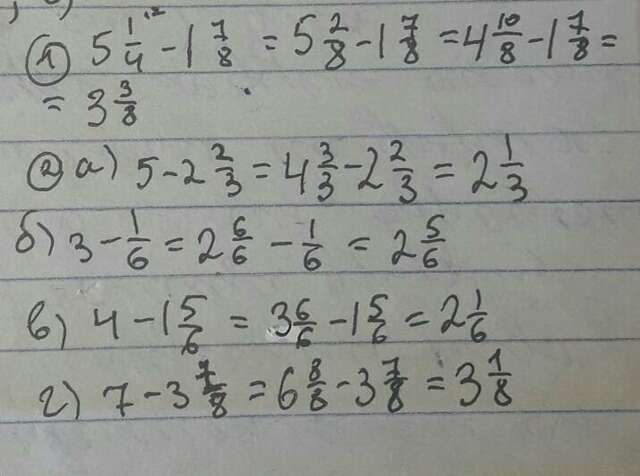 ① 5 1/4 ·2 - 1 7/8 = 5 2/8 - 1 7/8 = 4 10/8 - 1 7/8 =
= 3 3/8
② а) 5 - 2 2/3 = 4 3/3 - 2 2/3 = 2 1/3
б) 3 - 1/6 = 2 6/6 - 1/6 = 2 5/6
в) 4 - 1 5/6 = 3 6/6 - 1 5/6 = 2 1/6
г) 7 - 3 7/8 = 6 8/8 - 3 7/8 = 3 1/8